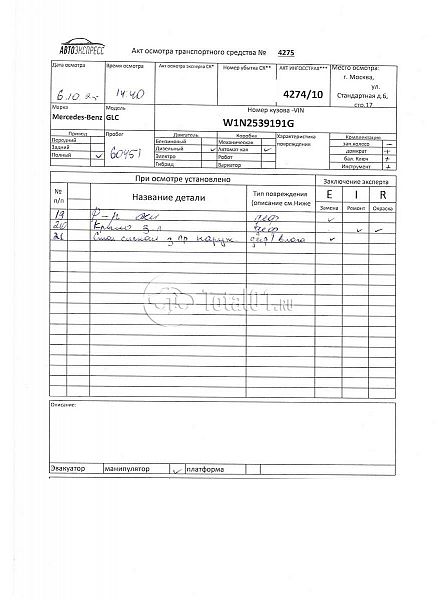 АВТОЭКСПРЕСС
Акт осмотра транспортного средства № 4275
Дата осмотра
Время осмотра
Акт осмотра эксперта СК*
Номер убытка СК**
АКТ ИНГОССТРАХ***
Место осмотра:
6.10.2
14.40
4274/10
г. Москва,
ул.
Стандартная д.6,
стр.17
Марка
Модель
Номер кузова -VIN
Mercedes-Benz
GLC
W1N2539191G
Привод
Пробег
Двигатель
Коробка
Характеристика повреждения
Комплектация
Передний
Бензиновый
Механическая
зап.колесо –
Задний
Дизельный ✓
Автомат-кая ✓
домкрат +
Полный ✓
60451
Электро
Робот
бал. Ключ +
Гибрид
Вариатор
Инструмент +
При осмотре установлено
Заключение эксперта
№ п/п
Название детали
Тип повреждения
(описание см.Ниже
E I R
Замена
Ремонт
Окраска
19
деф ✓
20 Крыло з л деф ✓ ✓
21 з пр наруж деф влага ✓
Total01.RU
Описание:
Эвакуатор
манипулятор
✓ платформа